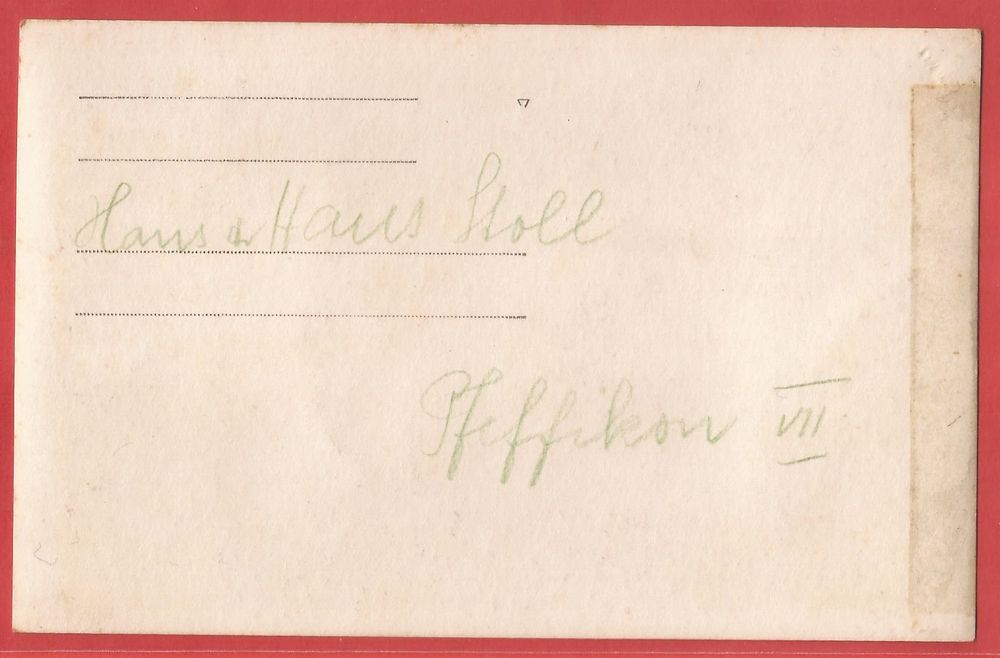 Hans & Hans Stoll
Pfeffikon VII